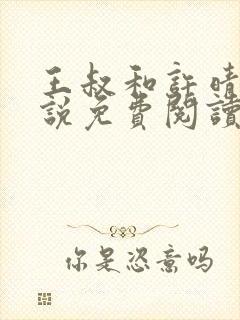 王叔和許晴
說免費閱讀
你是恣意吗